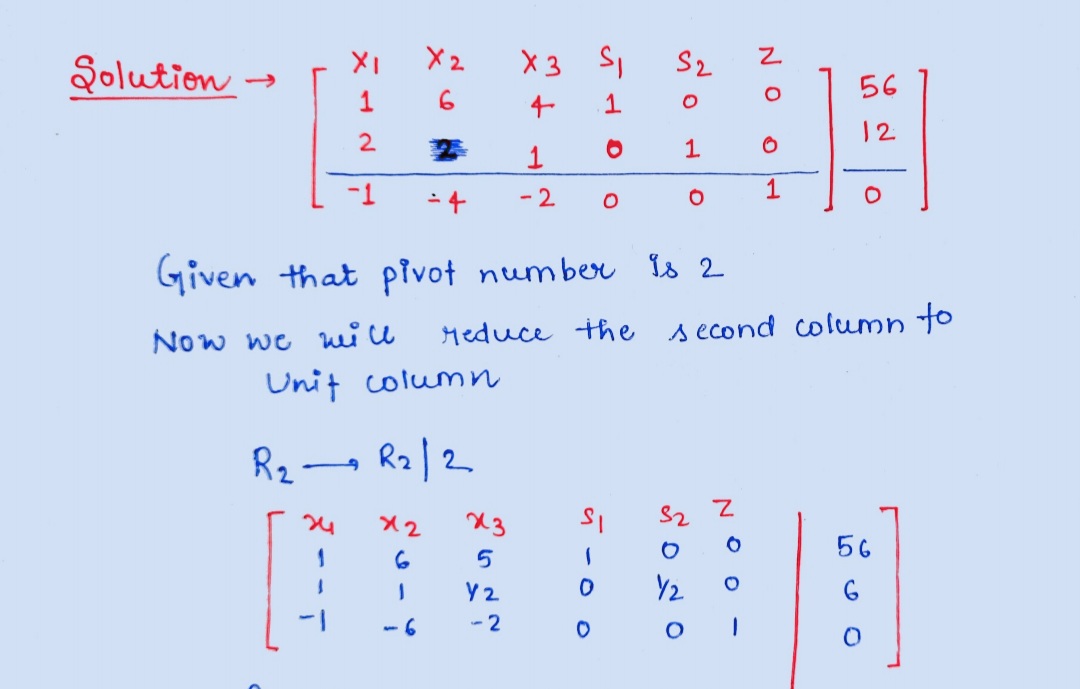 Solution →
X1 X2 X3 S1 S2 Z
1 6 4 1 0 0 56
2 2 1 0 1 0 12
-1 -4 -2 0 0 1 0
Given that pivot number is 2
Now we will reduce the second column to
Unit column
R2 → R2|2
x1 x2 x3 S1 S2 Z
1 6 5 1 0 0 56
1 1 1/2 0 1/2 0 6
-1 -6 -2 0 0 1 0